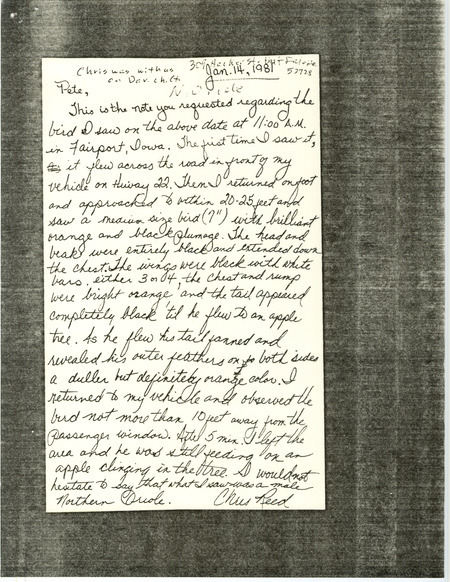 Chris was with us
on Dav. ch. ct.
Jan. 14, 1981
52778
Pete,
N. Oriole
This is the note you requested regarding the
bird I saw on the above date at 11:00 A.M.
in Fairport, Iowa. The first time I saw it,
it flew across the road in front of my
vehicle on Huway 22. Then I returned on foot
and approached to within 20-25 feet and
saw a medium size bird (7") with brilliant
orange and black plumage. The head and
beak were entirely black and extended down
the chest. The wings were black with white
bars, either 3 or 4, the chest and rump
were bright orange, and the tail appeared
completely black 'til he flew to an apple
tree. As he flew his tail fanned and
revealed his outer feathers on both sides
a duller but definitely orange color. I
returned to my vehicle and observed the
bird not more than 10 feet away from the
passenger window. After 5 min. I left the
area and he was still feeding on an
apple clinging in the tree. I would not
hesitate to say that what I saw was a male
Northern Oriole. Chris Reed